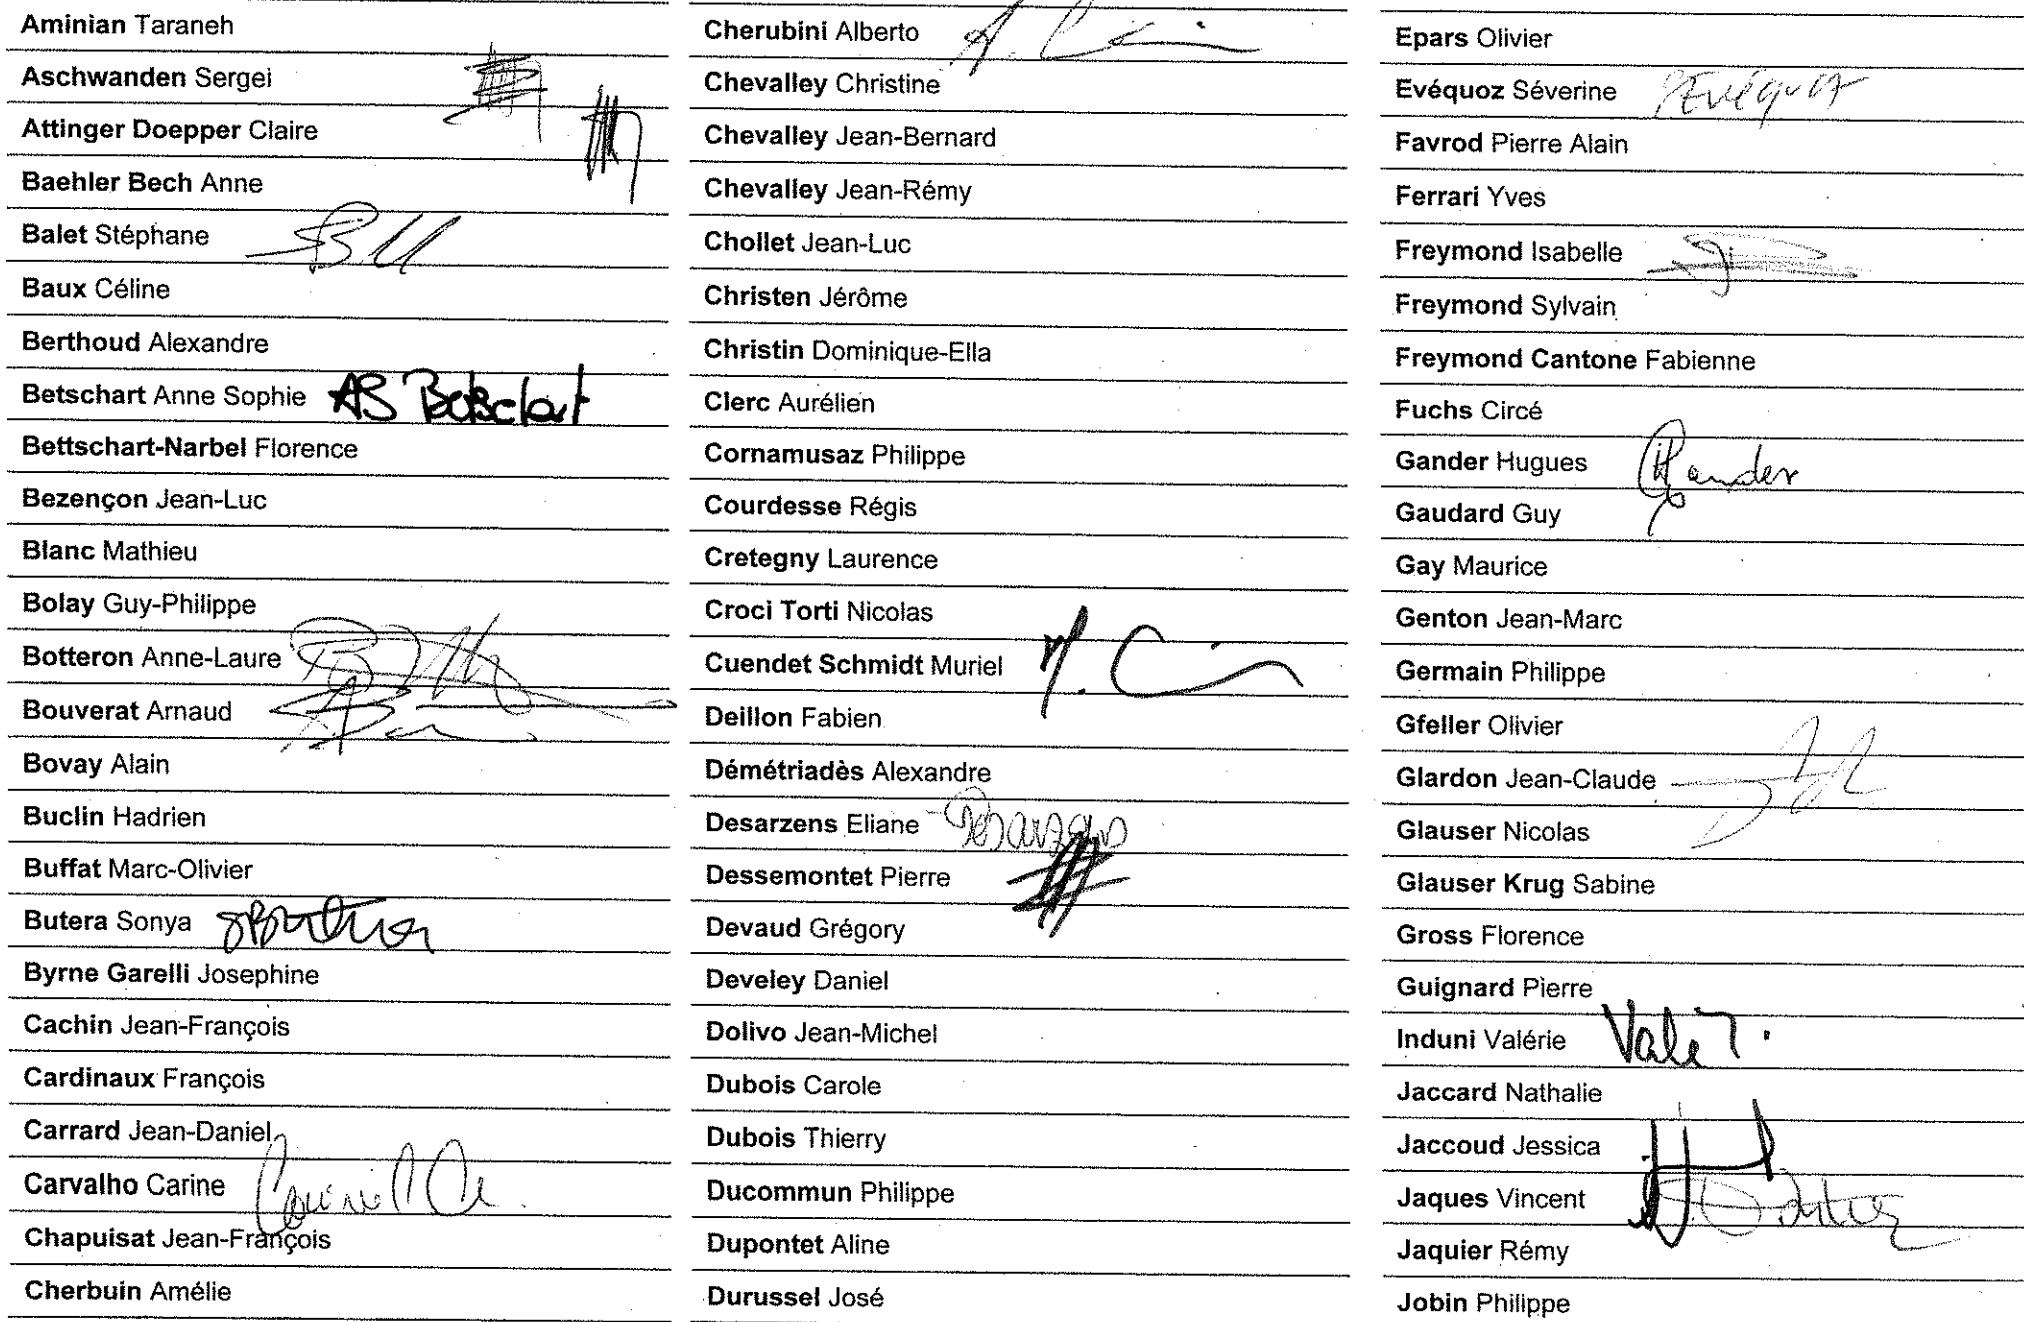 Aminian Taraneh
Aschwanden Sergei
Attinger Doepper Claire
Baehler Bech Anne
Balet Stéphane
Baux Céline
Berthoud Alexandre
Betschart Anne Sophie AS Betschart
Bettschart-Narbel Florence
Bezençon Jean-Luc
Blanc Mathieu
Bolay Guy-Philippe
Botteron Anne-Laure
Bouverat Arnaud
Bovay Alain
Buclin Hadrien
Buffat Marc-Olivier
Butera Sonya SButera
Byrne Garelli Josephine
Cachin Jean-François
Cardinaux François
Carrard Jean-Daniel
Carvalho Carine
Chapuisat Jean-François
Cherbuin Amélie
Cherubini Alberto
Chevalley Christine
Chevalley Jean-Bernard
Chevalley Jean-Rémy
Chollet Jean-Luc
Christen Jérôme
Christin Dominique-Ella
Clerc Aurélien
Cornamusaz Philippe
Courdesse Régis
Cretegny Laurence
Croci Torti Nicolas
Cuendet Schmidt Muriel
Deillon Fabien
Démétriadès Alexandre
Desarzens Eliane Desarzens
Dessemontet Pierre
Devaud Grégory
Develey Daniel
Dolivo Jean-Michel
Dubois Carole
Dubois Thierry
Ducommun Philippe
Dupontet Aline
Durussel José
Epars Olivier
Evéquoz Séverine SEvéquoz
Favrod Pierre Alain
Ferrari Yves
Freymond Isabelle
Freymond Sylvain
Freymond Cantone Fabienne
Fuchs Circé
Gander Hugues Gander
Gaudard Guy
Gay Maurice
Genton Jean-Marc
Germain Philippe
Gfeller Olivier
Glardon Jean-Claude
Glauser Nicolas
Glauser Krug Sabine
Gross Florence
Guignard Pierre
Induni Valérie
Jaccard Nathalie
Jaccoud Jessica
Jaques Vincent
Jaquier Rémy
Jobin Philippe